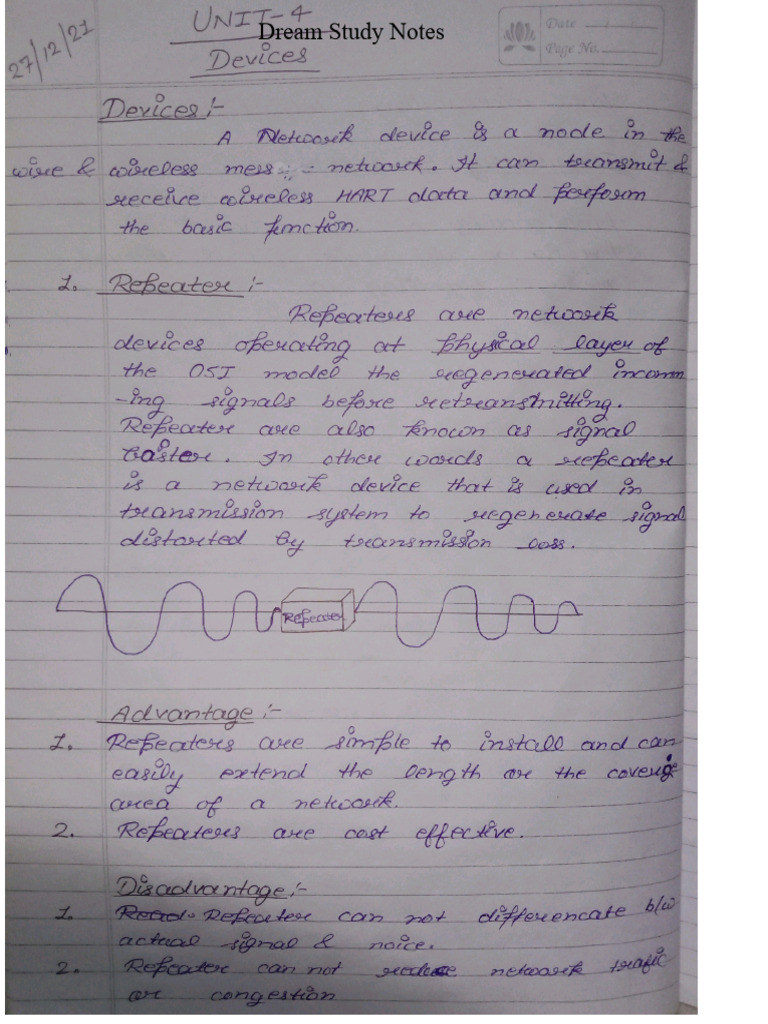 27/12/21
UNIT-4
Dream Study Notes
Devices
Date
Page No.
Devices :-
A Network device is a node in the
wire & wireless mess network. It can transmit &
receive wireless HART data and perform
the basic function.
1. Repeater :-
Repeaters are network
devices operating at physical layer of
the OSI model the regenerated incomm
-ing signals before retransmitting.
Repeater are also known as signal
Baster. In other words a repeater
is a network device that is used in
transmission system to regenerate signal
distorted by transmission loss.
Repeater
Advantage :-
1. Repeaters are simple to install and can
easily extend the length or the coverge
area of a network.
2. Repeaters are cost effective.
Disadvantage :-
1. Repeater can not differencate b/w
actual signal & noice.
2. Repeater can not reduce network trafic
or congestion